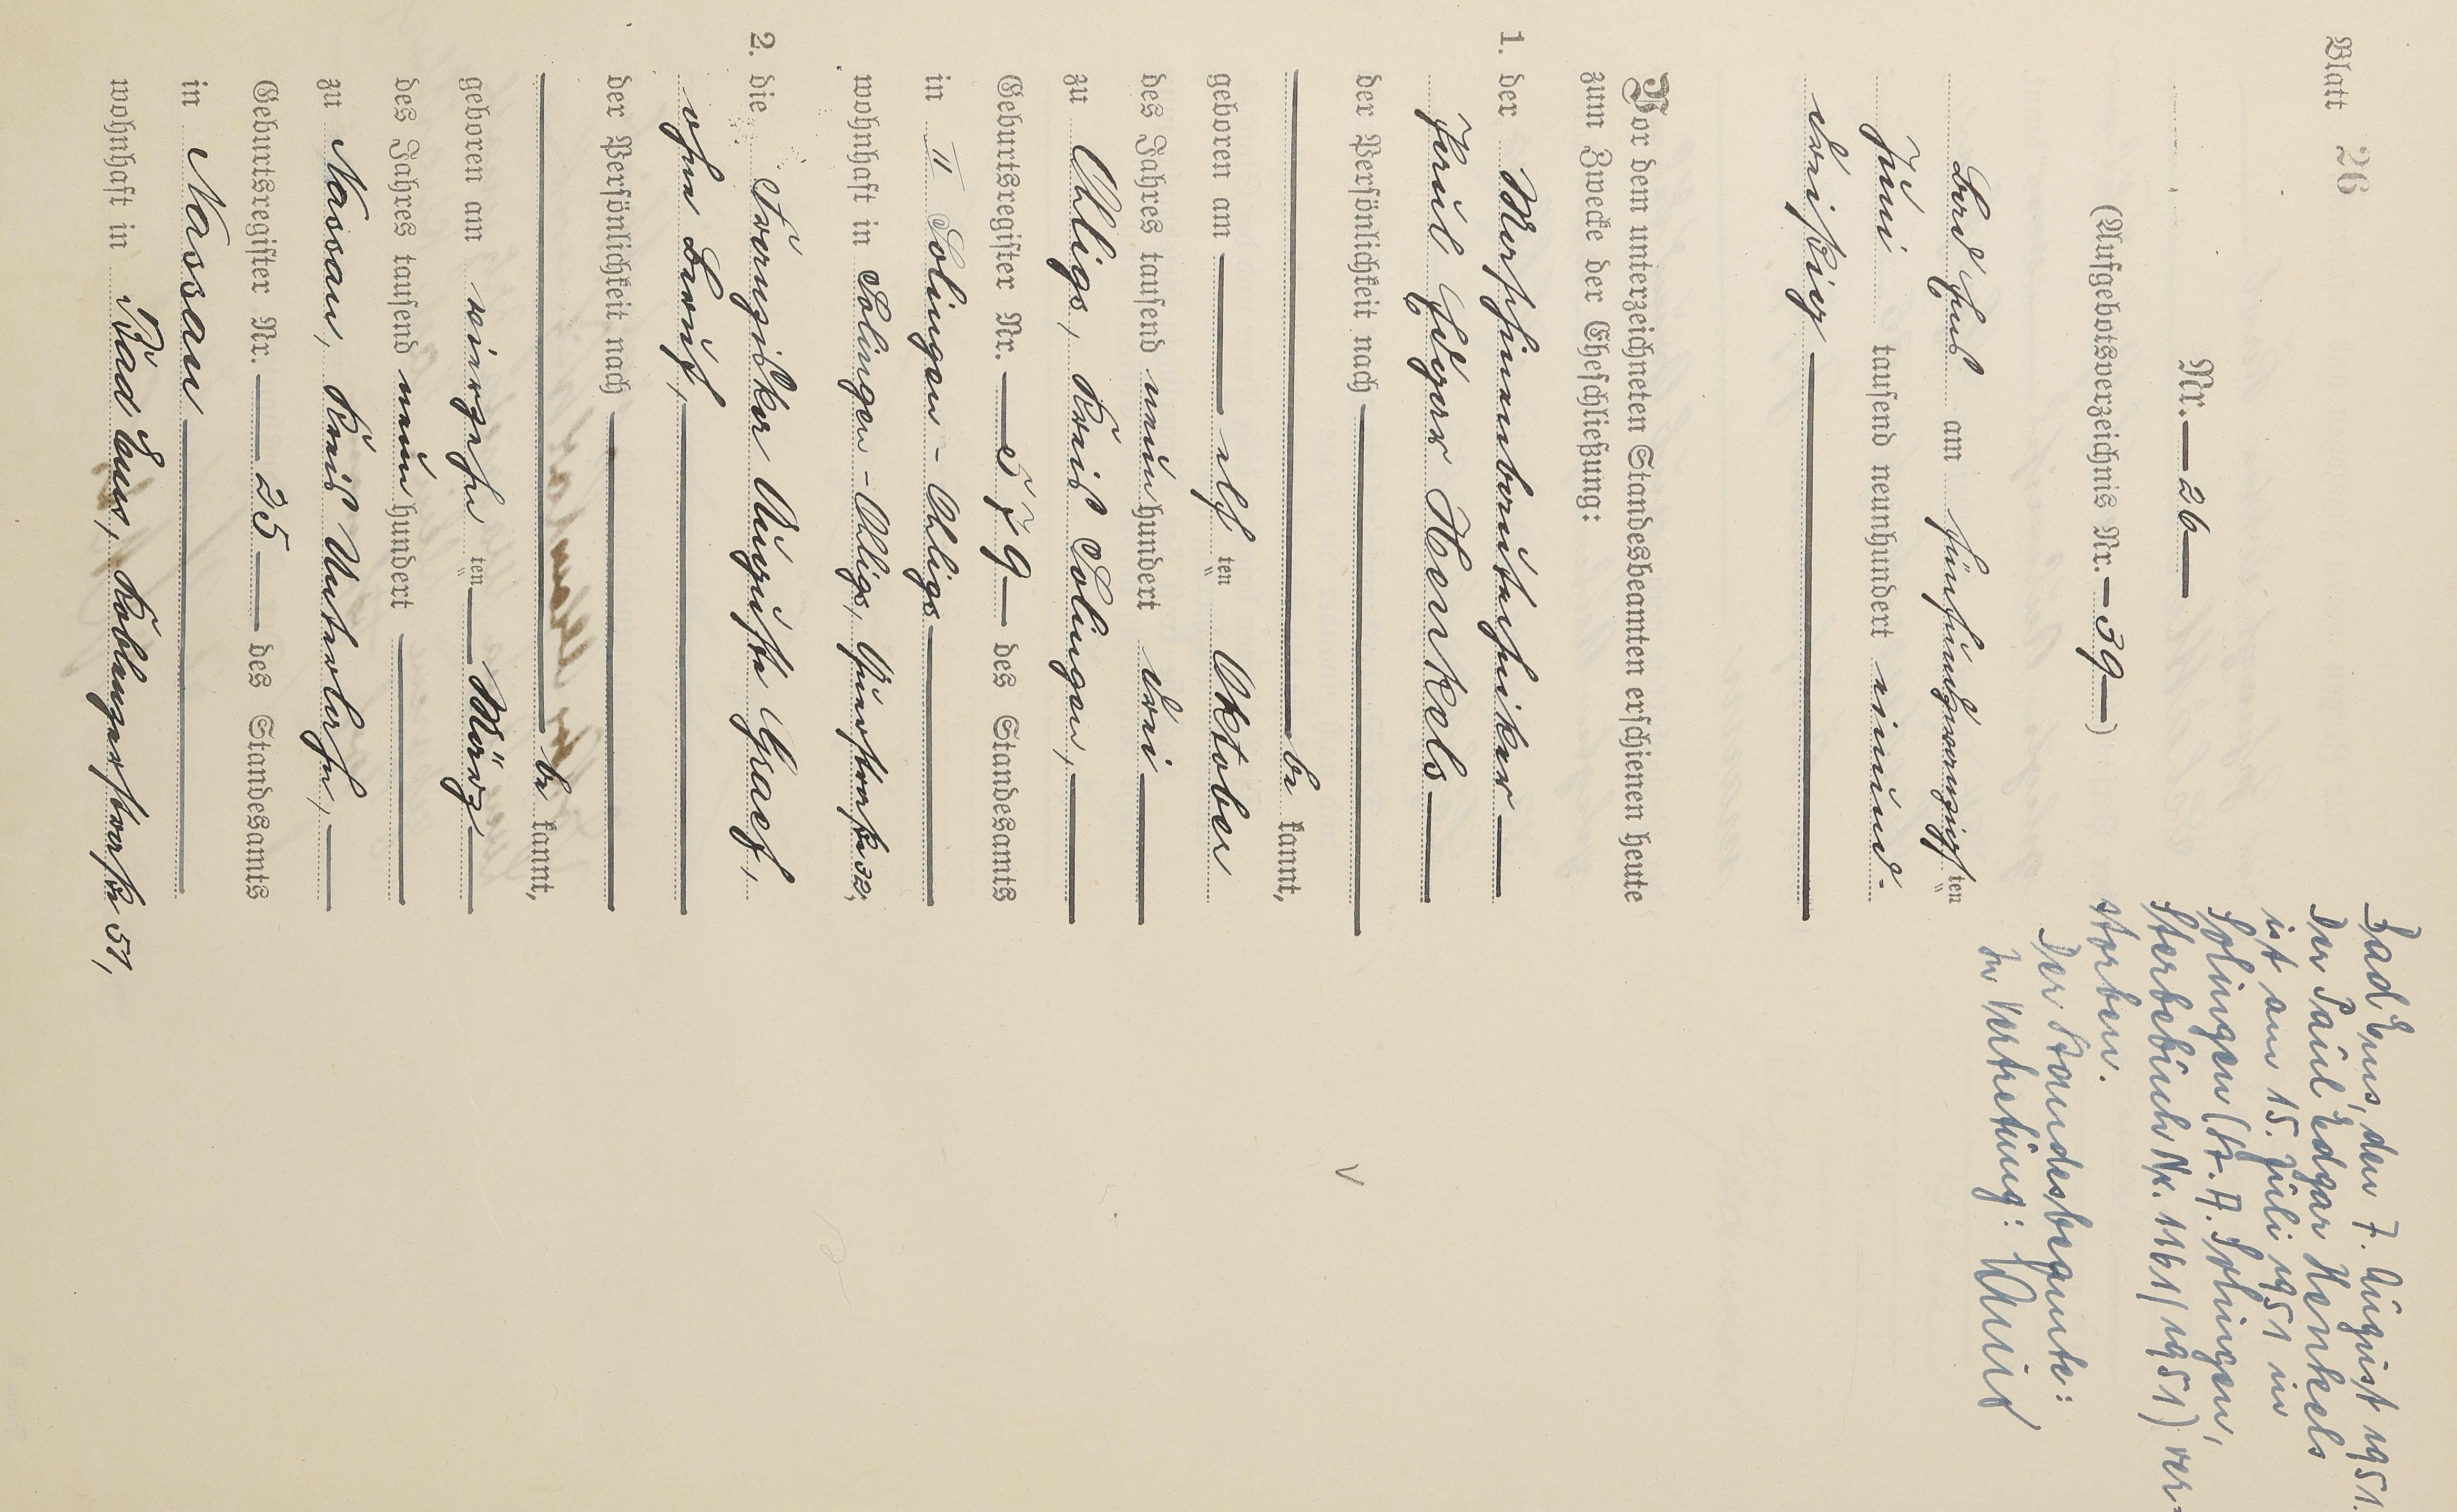 Blatt 26
Nr. 26
(Aufgebotsverzeichnis Nr. 39)
Bad Ems am fünfundzwanzigsten
Juni tausend neunhundert einund-
dreißig
Vor dem unterzeichneten Standesbeamten erschienen heute
zum Zwecke der Eheschließung:
1. der Maschinenbautechniker
Paul Edgar Henkels
der Persönlichkeit nach
be kannt,
geboren am elf ten Oktober
des Jahres tausend neun hundert drei
zu Ohligs, Kreis Solingen,
Geburtsregister Nr. 579 des Standesamts
in II Solingen-Ohligs
wohnhaft in Solingen-Ohligs, 32,
2. die Franziska Auguste Graef,
ohne Beruf,
der Persönlichkeit nach
be kannt,
geboren am vierzehn ten März
des Jahres tausend neun hundert
zu Nassau, Kreis Unterlahn,
Geburtsregister Nr. 25 des Standesamts
in Nassau
wohnhaft in Bad Ems, Koblenzerstraße 51,
Bad Ems, den 7. August 1951.
Der Paul Edgar Henkels
ist am 15. Juli 1951 in
Solingen (St. A. Solingen,
Sterbebuch Nr. 1161/1951) ver-
storben.
Der Standesbeamte:
In Vertretung: